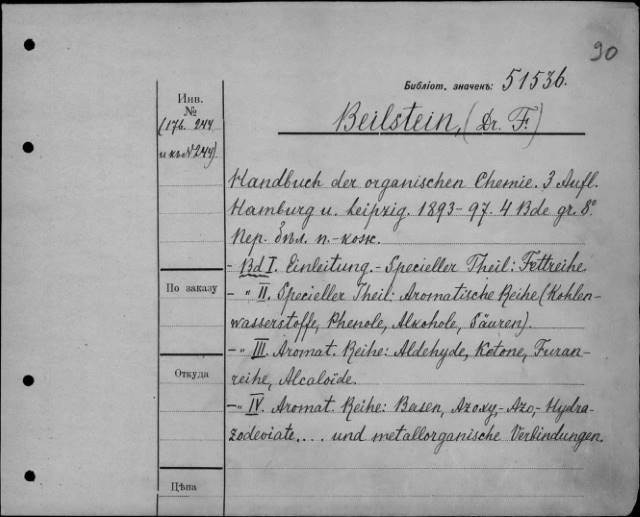 90
Библіот. значекъ: 51536.
Инв.
№
(176. 244
и къ № 244)
Beilstein, (Dr. F.)
Handbuch der organischen Chemie. 3 Aufl.
Hamburg u. Leipzig. 1893-97. 4 Bde gr. 8º
Пер. бѣл. п.-кож.
- Bd I. Einleitung. - Specieller Theil: Fettreihe.
- " II. Specieller Theil: Aromatische Reihe (Kohlen-
wasserstoffe, Phenole, Alkohole, Säuren).
- " III. Aromat. Reihe: Aldehyde, Ketone, Furan-
reihe, Alcaloïde.
- " IV. Aromat. Reihe: Basen, Azoxy-, Azo-, Hydra-
zodeviate.... und metallorganische Verbindungen.
По заказу
Откуда
Цѣна